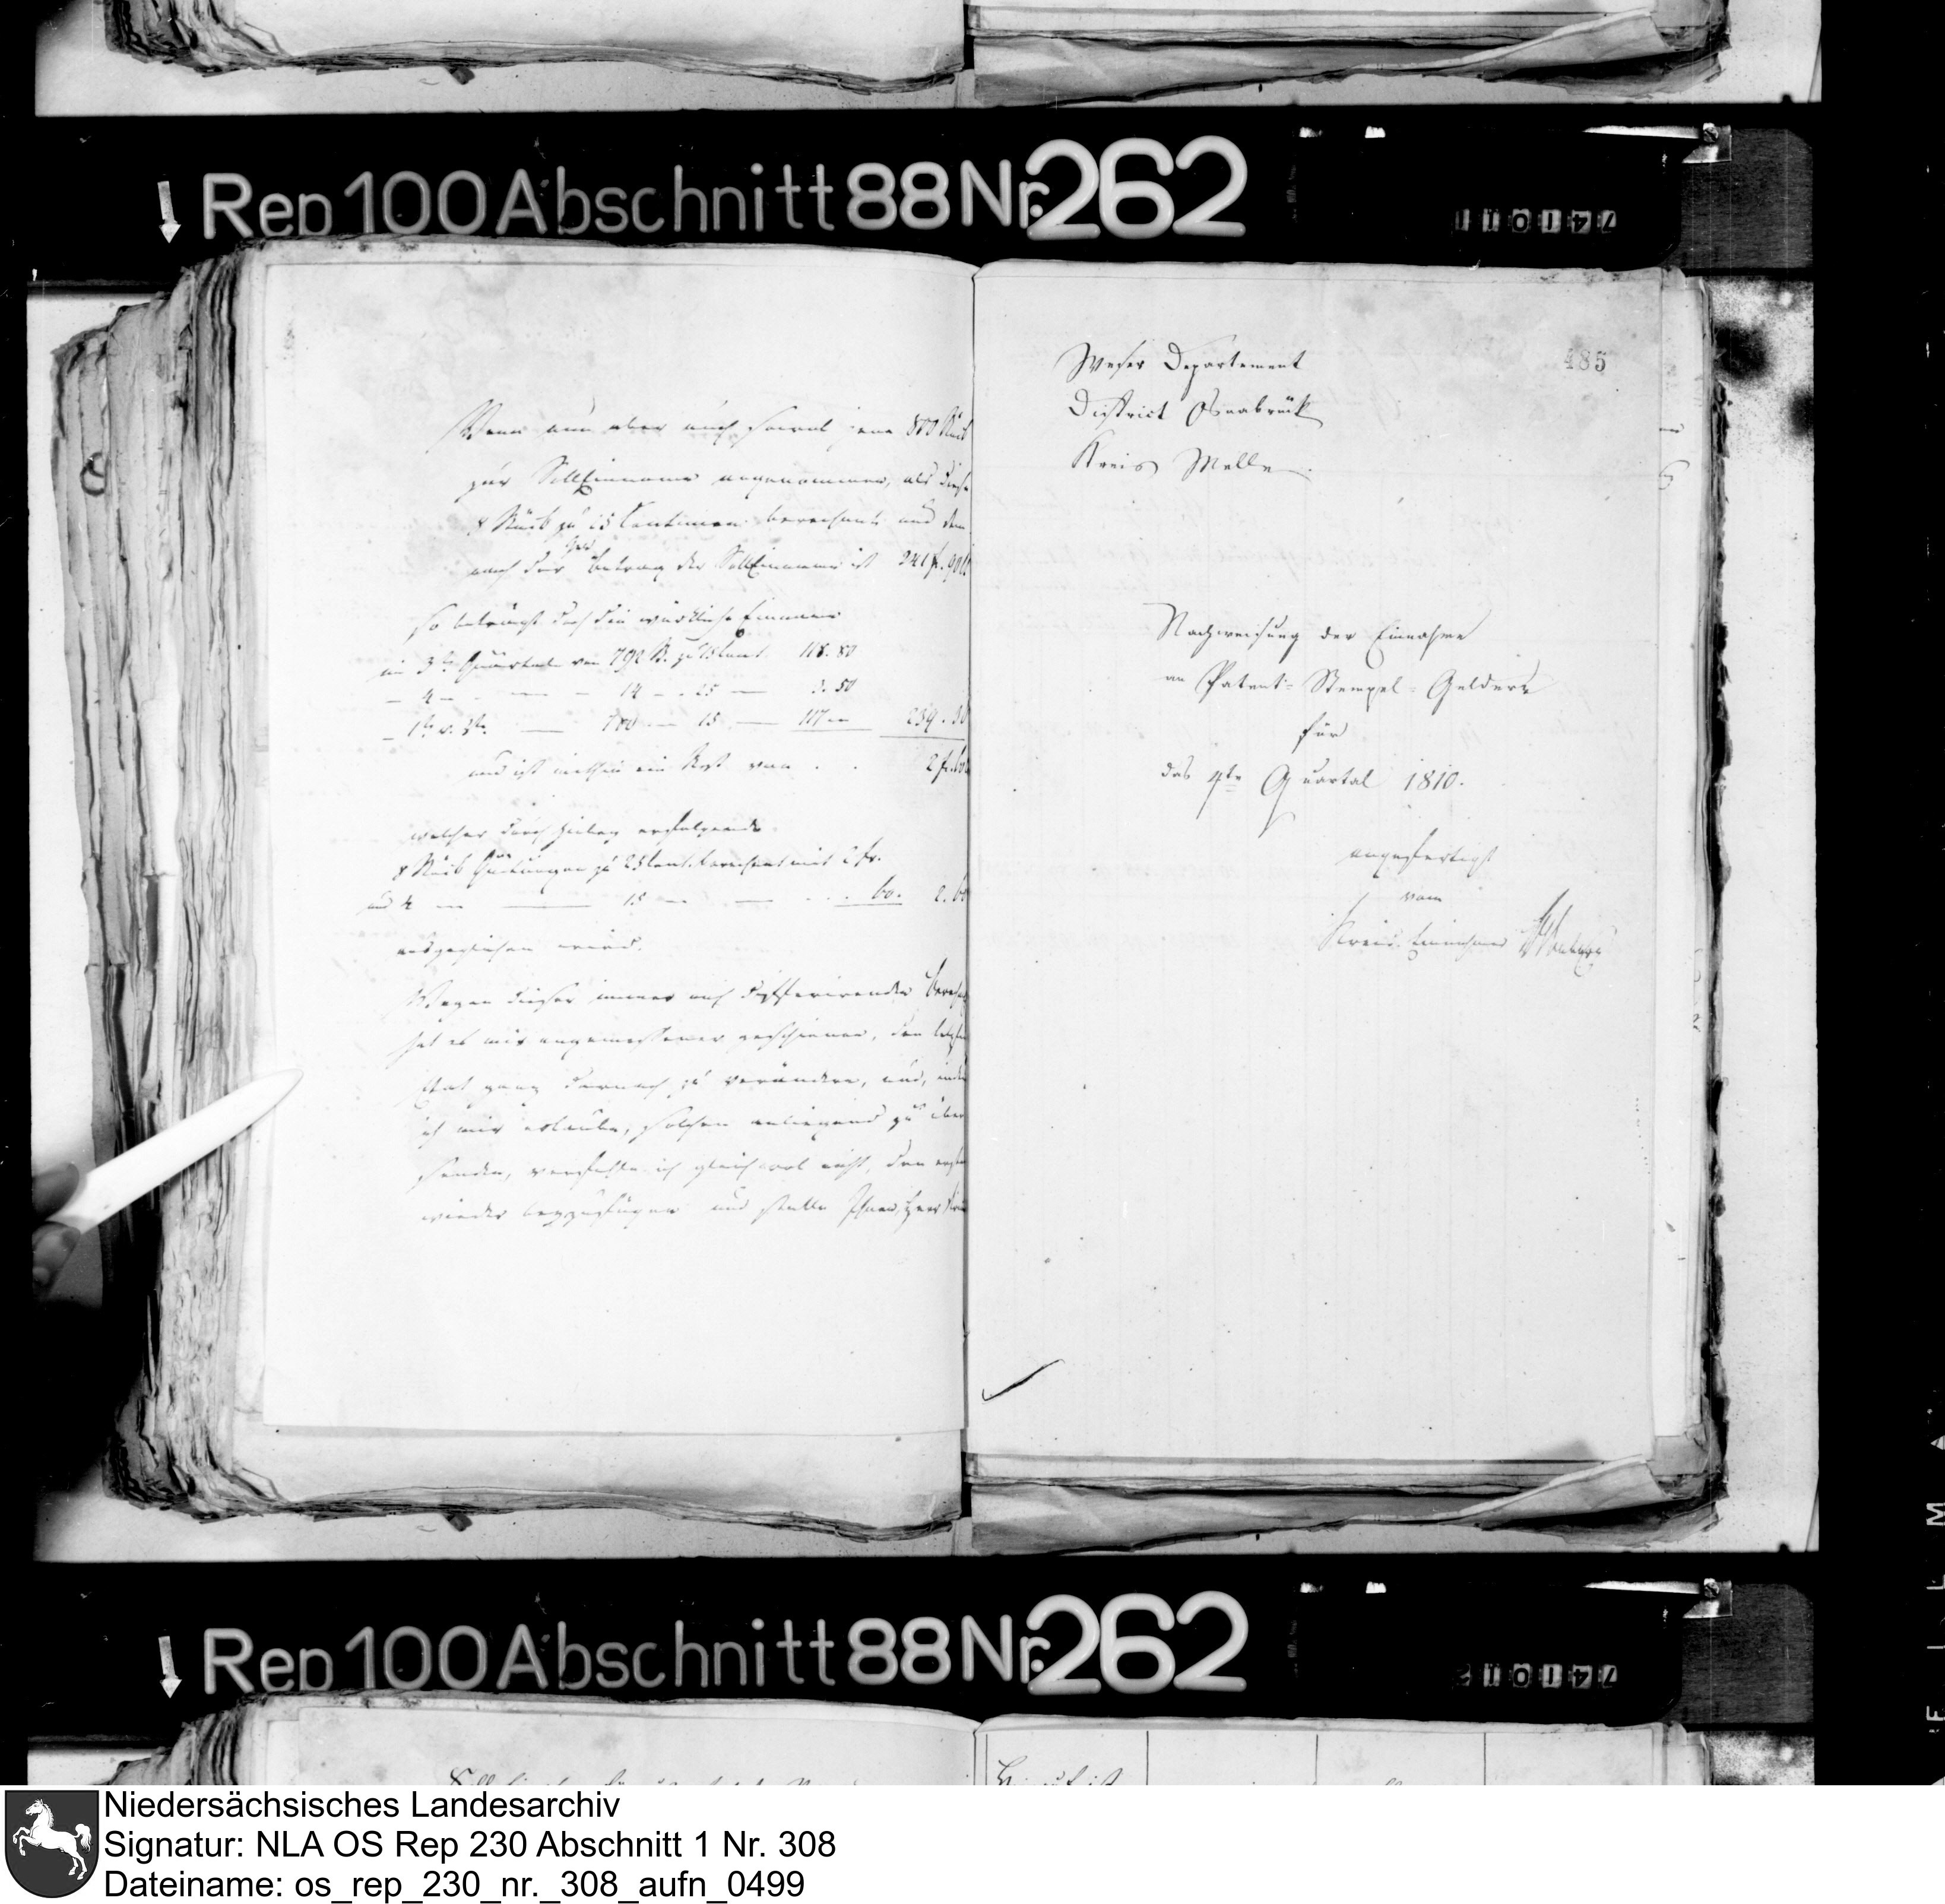 Rep 100 Abschnitt 88 Nr. 262
Wenn nun aber auch soviel jene 800 Stück
zur Solleinname angenommen, als diese
8 Stück zu 25 Centimen berechnet und dem
nach der Geld Betrag der Solleinname ist 241 f. 90
so beträgt doch die wirkliche Einname
im 3ten Quartal von 792 St. zu 15 Cent. 118. 80
— 4 — — 14 — 25 — 3. 50
— 1ten — 780 — 15 — 117 — 239. 30
und ist mithin ein Rest von . . 2 f. 60
welcher durch hiebey erfolgende
8 Stück zu 25 Cent. berechnet mit 2 fr.
und 4 — — 15 — — . . 60. 2. 60
ausgeglichen wird.
Wegen dieser immer noch differirenden
hat es mir angemessener geschienen, den
Etat ganz darnach zu verändern, und, indem
ich mir erlaube, solchen anliegend zu über
senden, verfehle ich gleichwol nicht, den
wieder beyzufügen und stelle Ihnen, Herr
485
Weser Departement
District Osnabrück
Kreis Melle.
Nachweisung der Einnahme
an Patent-Stempel-Geldern
für
das 4te Quartal 1810.
angefertigt
vom
Kreis-Einnehmer
Rep 100 Abschnitt 88 Nr. 262
Niedersächsisches Landesarchiv
Signatur: NLA OS Rep 230 Abschnitt 1 Nr. 308
Dateiname: os_rep_230_nr._308_aufn_0499